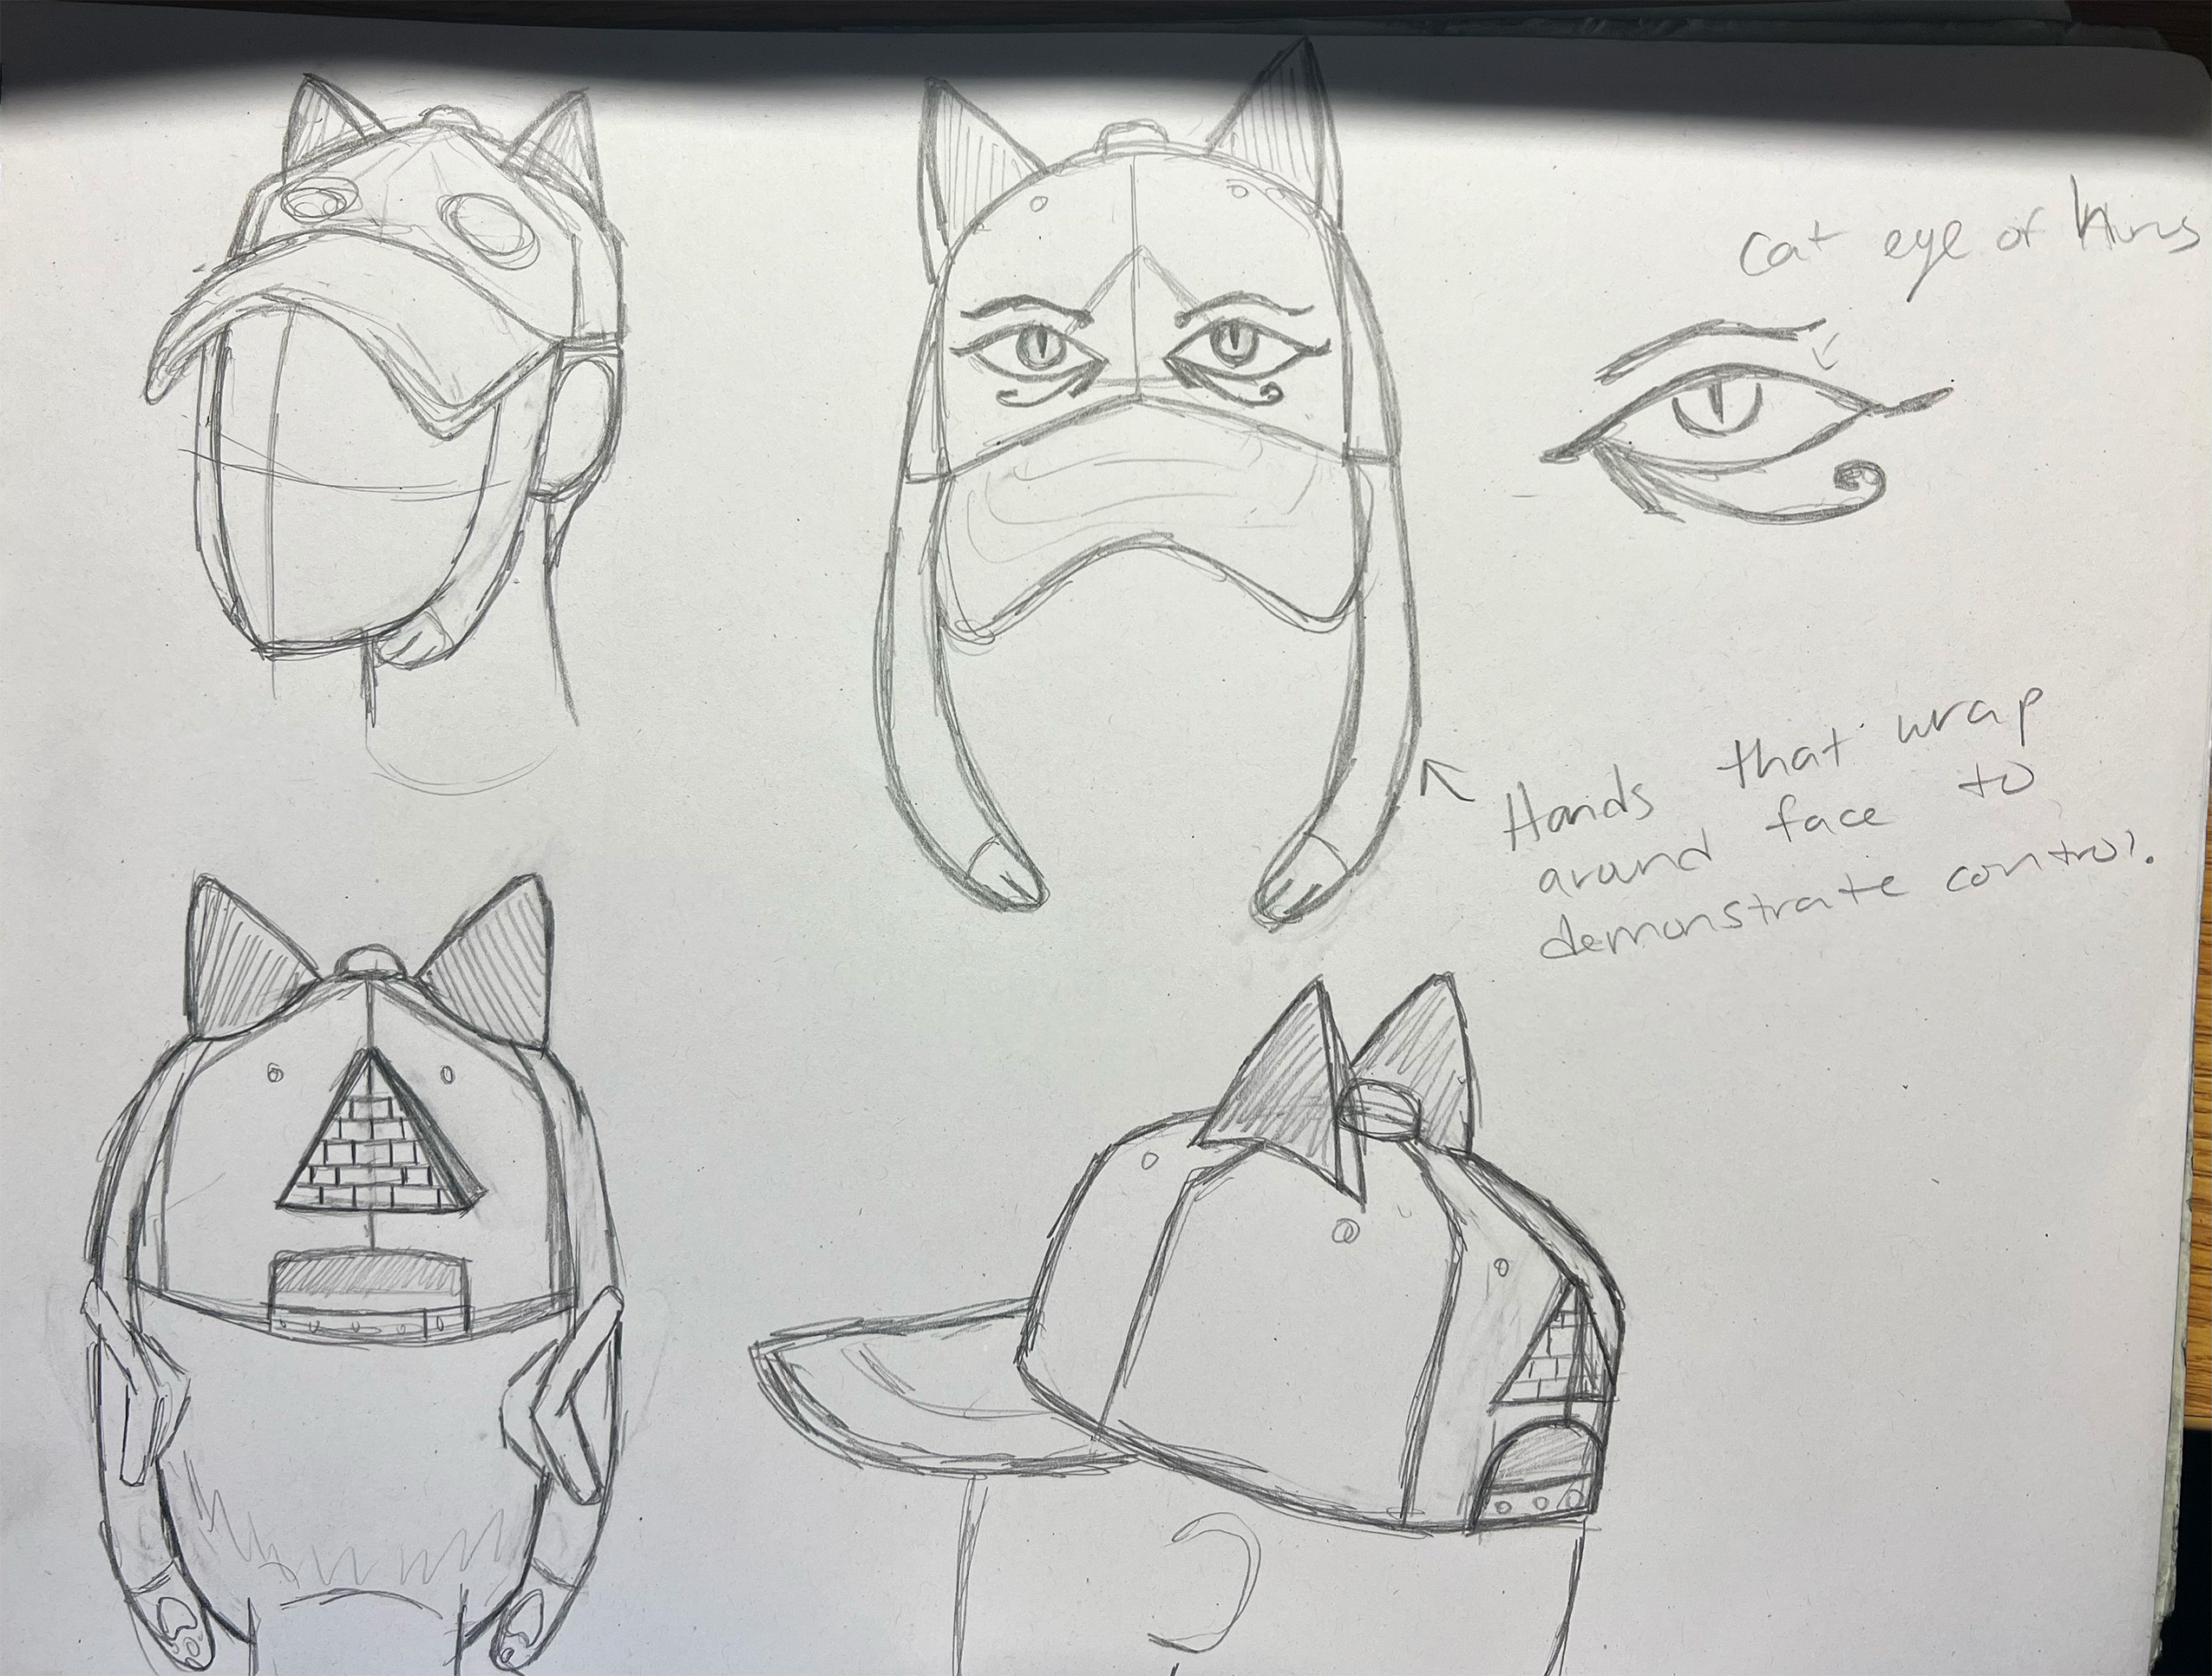 Cat eye of Horus
Hands that wrap
around face to
demonstrate control.